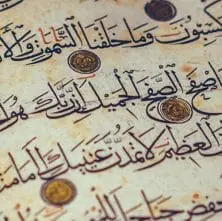 يكسبون وما خلقنا السموت والأ
فاصفح الصفح الجميل إن ربك هو
العظيم لا تمدن عينيك إلى ما
واخفض جناحك